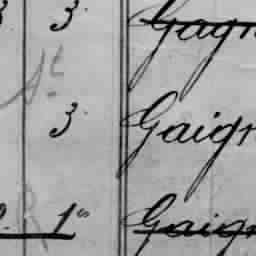 3. 3. Gagn
St
3. Gaign
1° Gaign